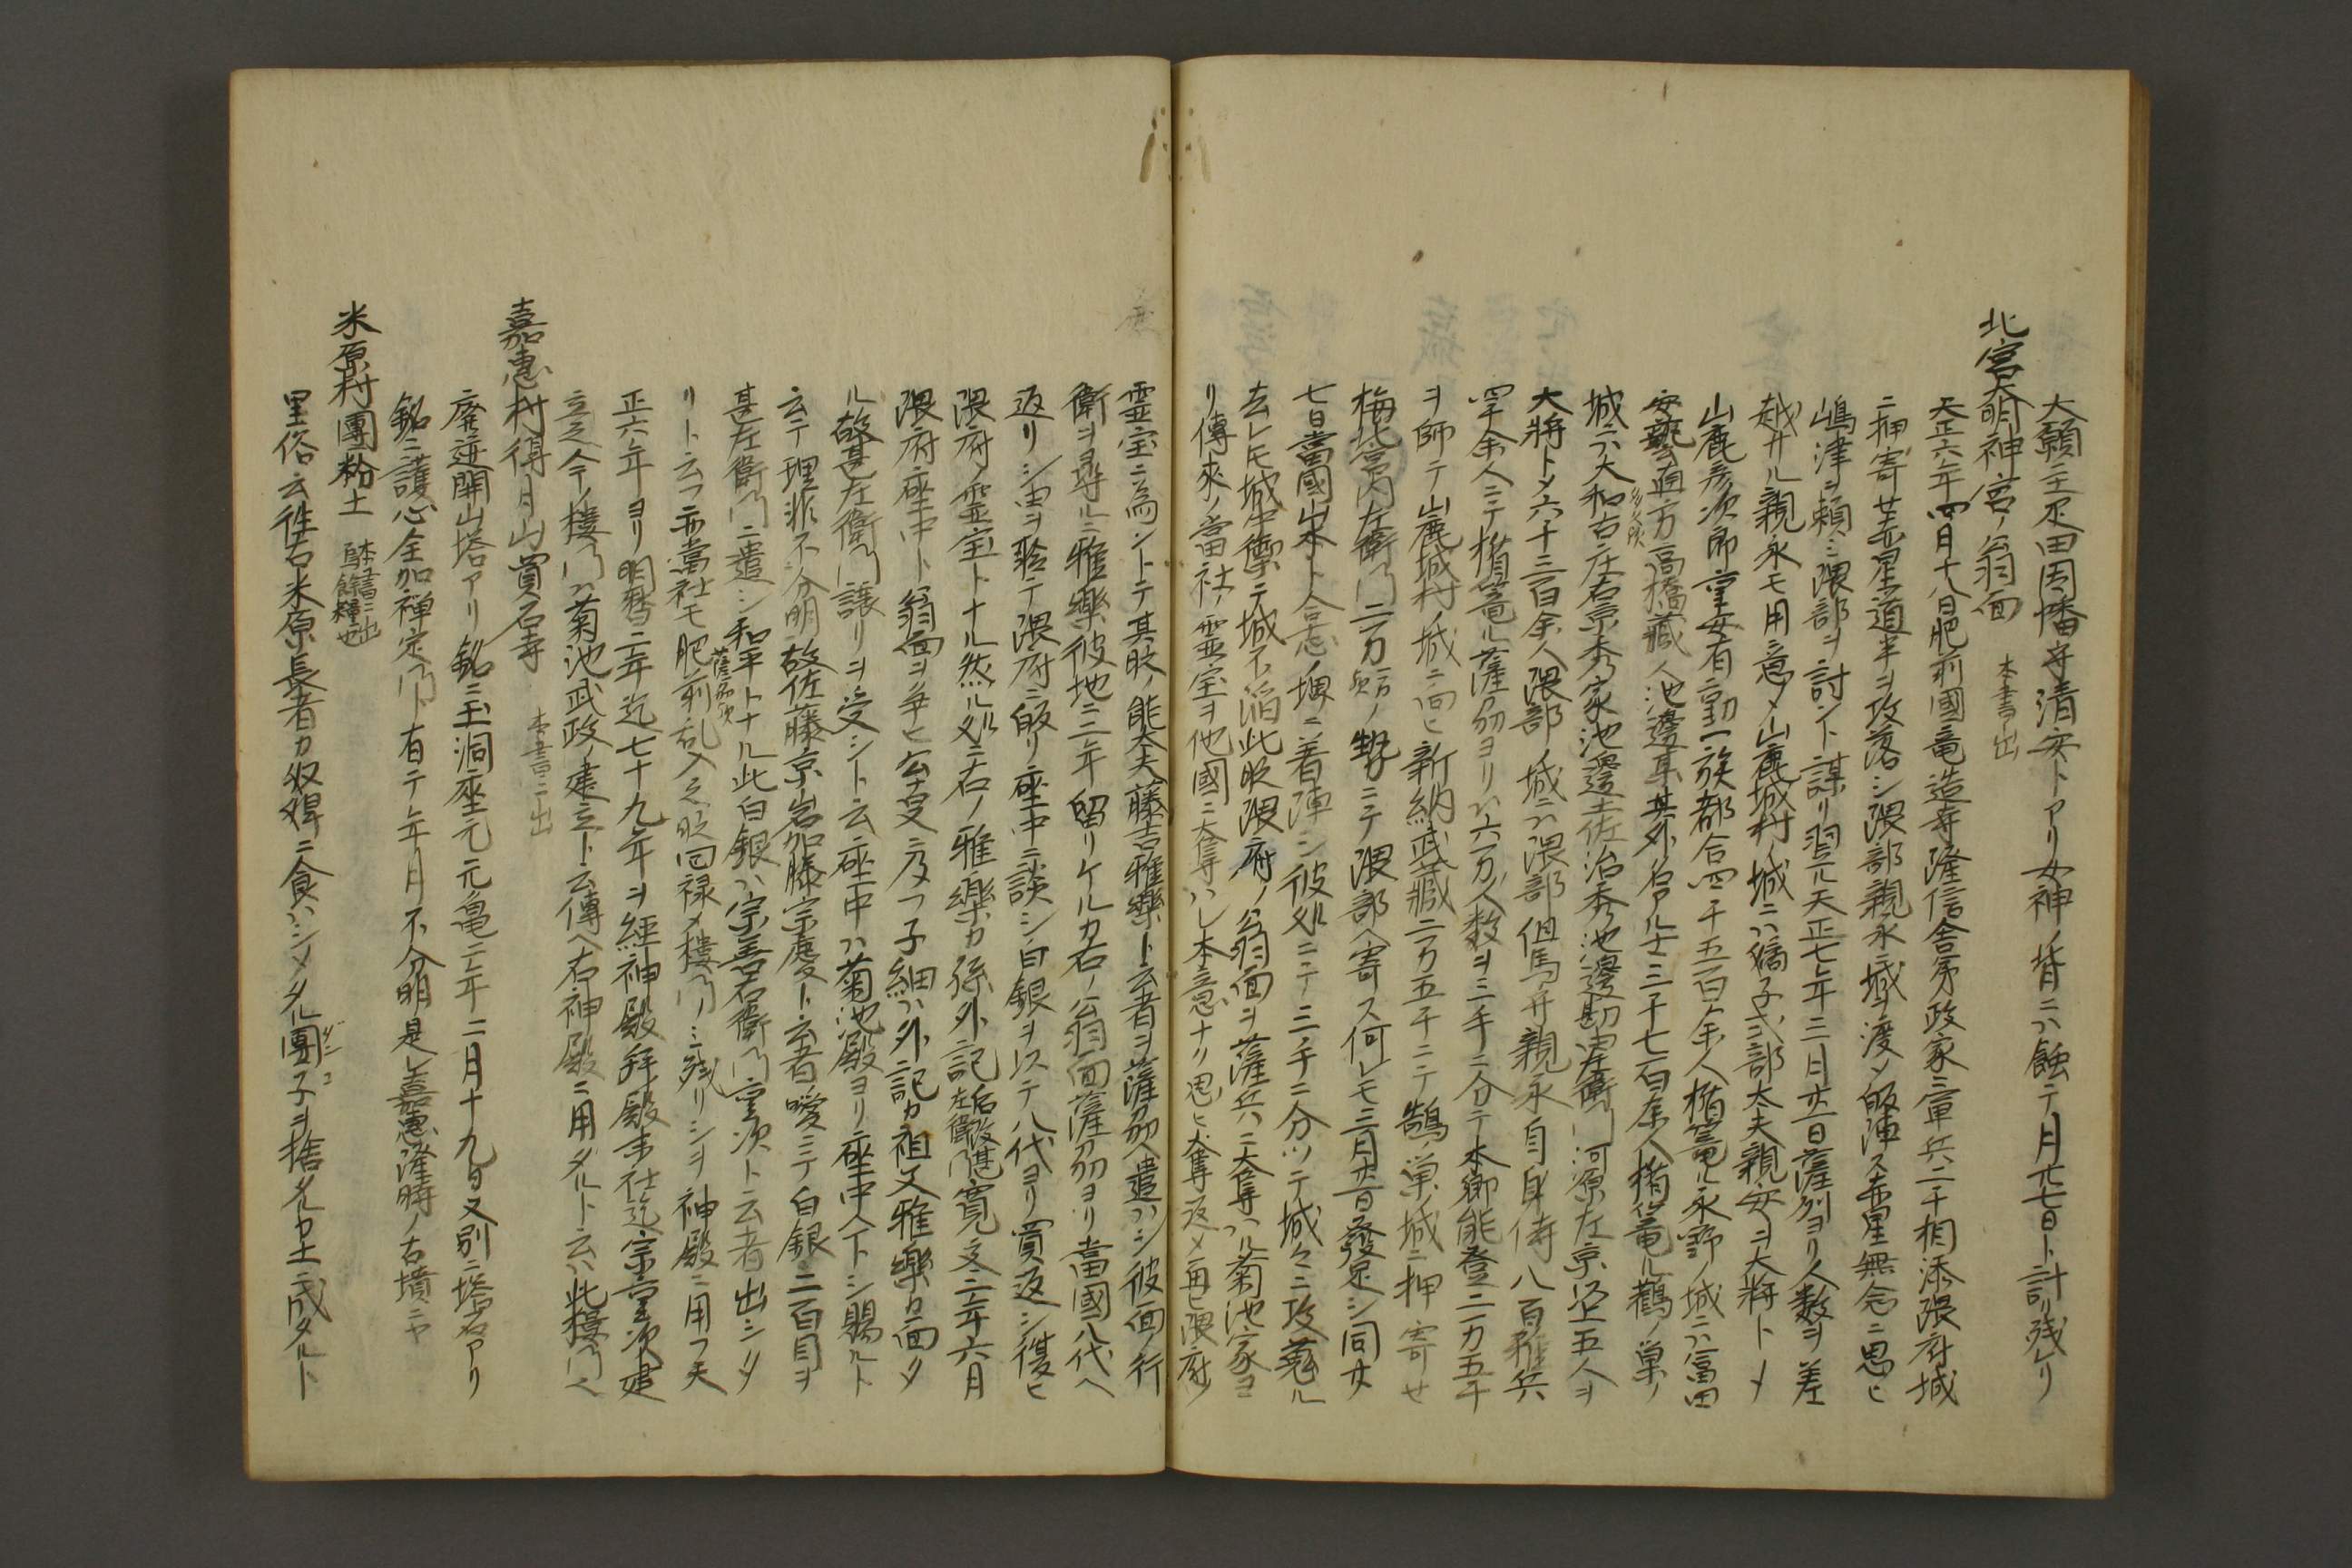 大願主疋田因幡守清安トアリ女神ノ背ニハ蝕テ月廿七日ト計リ残レリ
北宮大明神宮ノ翁面 本書出
天正六年四月十八日肥前國竜造寺隆信舎弟政家ニ軍兵二千相添隈府城
ニ押寄せ赤星道半ヲ攻落シ隈部親永ニ城ヲ渡〆皈陣ス赤星無念ニ思ヒ
嶋津ヲ頼ミ隈部ヲ討ント謀リ翌ル天正七年三月廿一日薩列ヨリ人数ヲ差
越サル親永モ用意〆山鹿城村ノ城ニハ嫡子式部太夫親安ヲ大将ト〆
山鹿彦次郎重安有働一族都合四千五百余人楯篭ル永野ノ城ニハ冨田
安藝道方高橋蔵人池邊其外名アル士三千七百余人楯篭ル鶴ノ巣ノ
城ニハ大和右庄右京秀家池邊土佐治秀池邊勘左衛門河源左京 五人ヲ
大将ト〆六千三百余人隈部ノ城ニハ隈部但馬弁親永自身侍八百雑兵
四千余人ニテ楯篭ル薩刕ヨリハ六万人数ヲ三手ニ分テ本郷能登二万五千
ヲ師テ山鹿城村ノ城ニ向ヒ新納武蔵二万五千ニテ鶴ノ巣ノ城ニ押寄せ
梅北宮内左衛門二万 ノ勢ニテ隈部ヘ寄ス何レモ三月廿一日發足シ同廿
七日當國山本ト合志ノ堺ニ着陣シ彼処ニテ三ノ手ニ分ツテ城々ニ攻蒐ル
去レモ城中禦テ城不陷此時隈府ノ翁面ヲ薩兵ニ奪ハル菊池家ヨ
リ傳来ノ當社ノ霊宝ヲ他國ニ奪ハレ本意ナク思ヒ奪返〆再ヒ隈府ノ
霊宝ニ為ントテ其時ノ能太夫藤吉雅樂ト云者ヲ薩刕ヘ遣ハシ彼面ノ行
衛ヲ尋ルニ雅樂彼地ニ三年留リケルカ右ノ翁面薩刕ヨリ當國八代ヘ
返リシ由ヲ聆テ隈府ニ皈リ座中ニ談シ白銀ヲ以テ八代ヨリ買返シ復ヒ
隈府ノ霊宝トナル然ル処ニ右ノ雅樂カ孫外記 后改甚左衛門 寛文三年六月
隈府座中ト翁面ヲ争ヒ公叓ニ及フ子細ハ外記カ祖父雅樂カ面タ
ル故甚左衛門譲リヲ受シト云座中ハ菊池殿ヨリ座中ヘ下シ賜ルト
云テ理非不分明故佐藤京岩加藤宗慶ト云者曖ミテ白銀二百目ヲ
甚左衛門ニ遣シ和平トナル此白銀ハ宗善右衛門重次ト云者出シタ
リト云フ亦當社モ肥前乱入之時回禄〆樓門ノミ残リシヲ神殿ニ用フ天
正六年ヨリ明暦二年迄七十九年ヲ経神殿拜殿末社迄宗重次建
立之今ノ樓門ハ菊池武政ノ建立ト云傳ヘ右神殿ニ用タルト云ハ此樓門ヘ
嘉恵村得月山買石寺 本書ニ出
廃迹開山塔アリ銘ニ玉洞座元元亀二年二月十九日又別ニ塔石アリ
銘ニ護心全加禅定門ト有テ年月不分明是レ嘉惠隆時ノ古墳ニヤ
米原村團粉土 本書ニ出
里俗云徃古米原長者カ奴婢ニ食ハシメタル團子ヲ捨タルカ土ニ成タルト